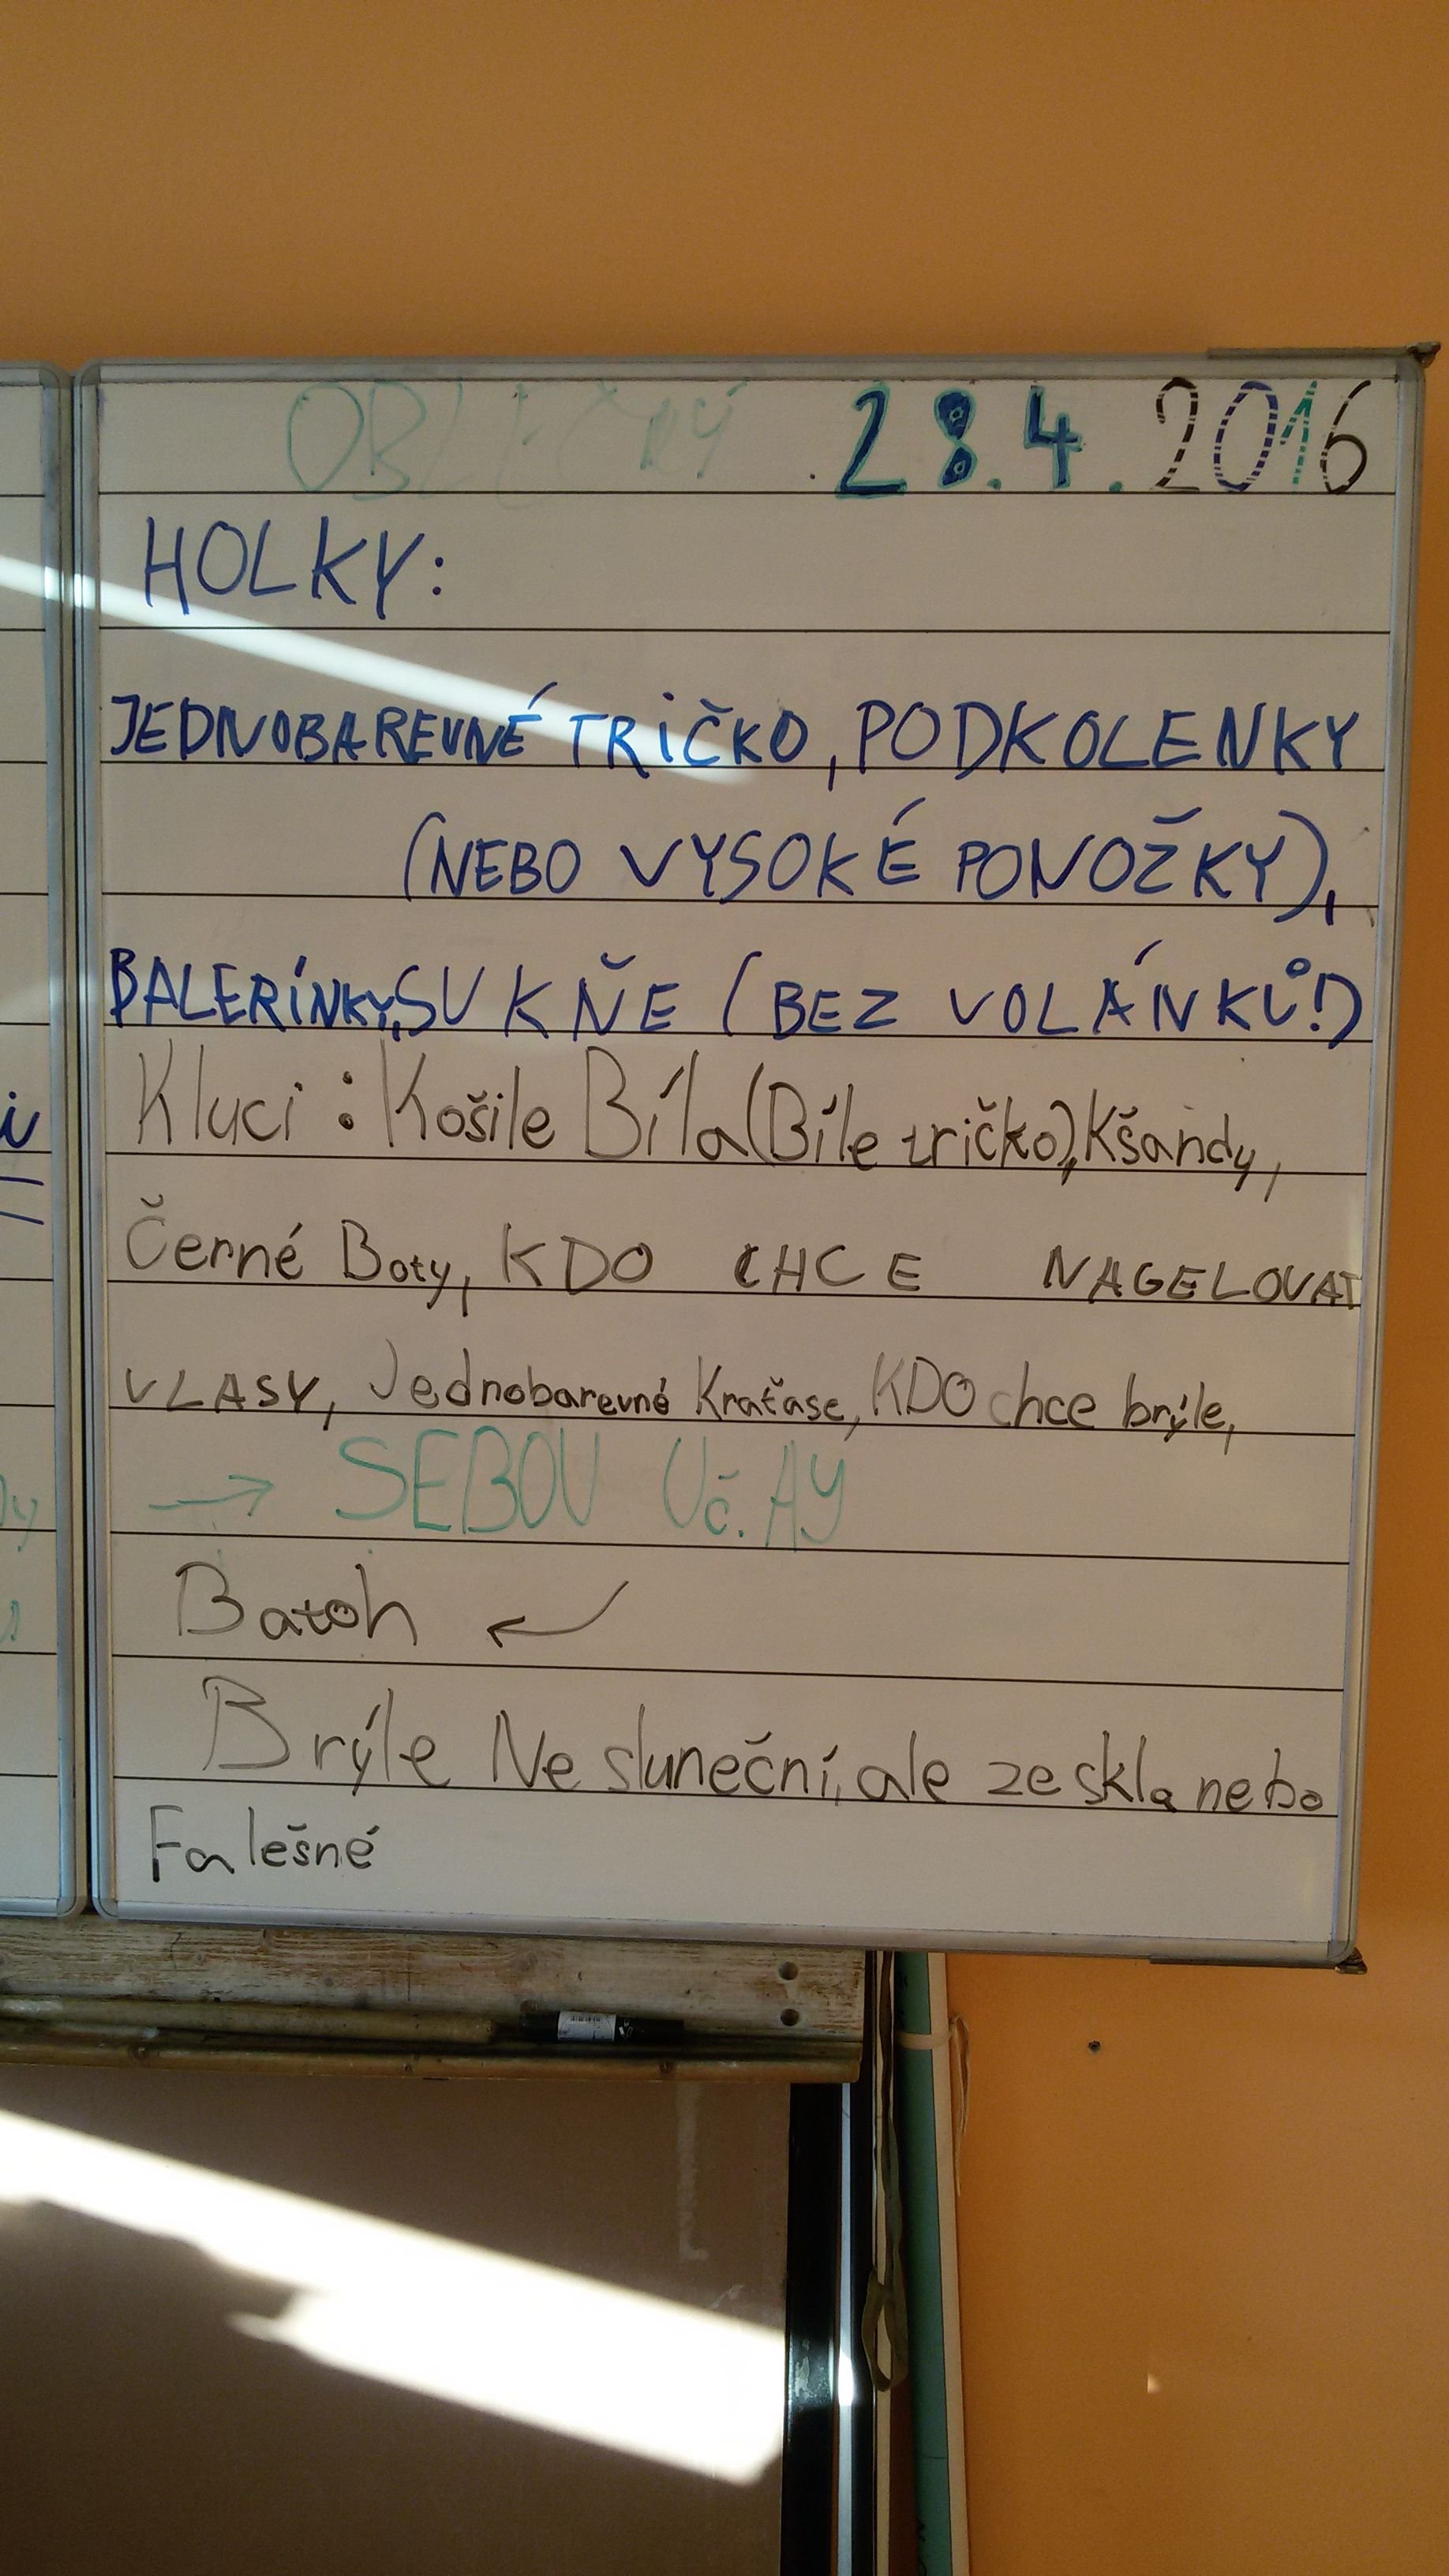 28.4.2016
HOLKY:
JEDNOBAREVNÉ TRIČKO, PODKOLENKY
(NEBO VYSOKÉ PONOŽKY),
BALERÍNKY, SUKŇE (BEZ VOLÁNKŮ!)
Kluci: Košile Bíla (Bíle tričko), Kšandy,
Černé Boty, KDO CHCE NAGELOVAT
VLASY, Jednobarevné Kraťase, KDO chce brýle,
→ SEBOU Uč. AY
Batoh ←
Brýle Ne sluneční, ale ze skla nebo
Falešné